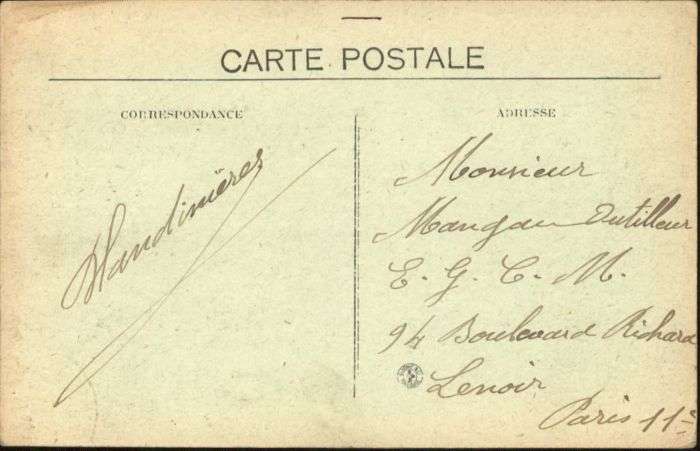 CARTE POSTALE
CORRESPONDANCE
ADRESSE
Monsieur
Mangau Outilleur
E. G. C. M.
94 Boulevard Richard
Lenoir
Paris 11e